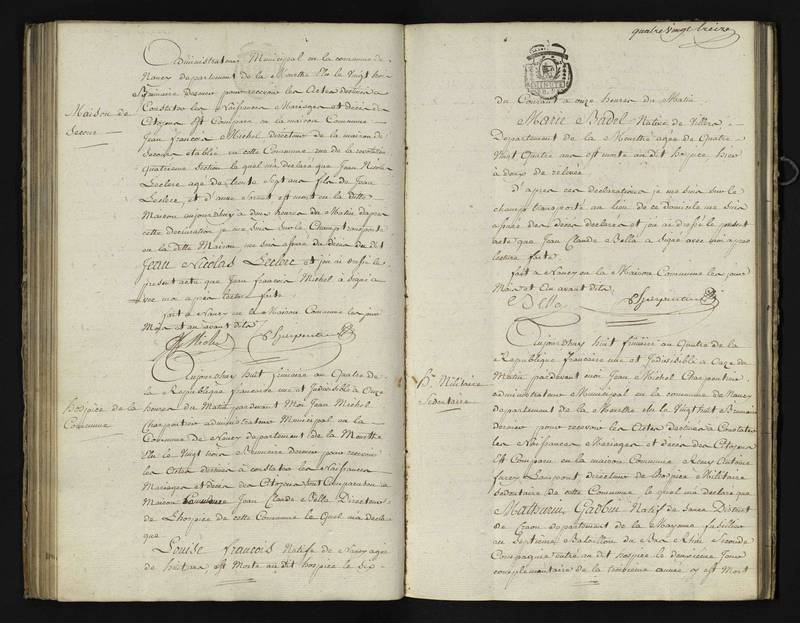 administrateur Municipal en la commune de
Nancy departement de la Meurthe Elu le Vingt huit
Brumaire dernier pour recevoir les Actes destinés a
Maison de
Secour
Constater les Naissances Mariages et décès des
Citoyens Est Comparu en la maison Commune
Jean françois Michel directeur de la maison de
Secours établie en cette Commune rue de la
quatrieme Section le quel m'a declaré que Jean Nicolas
Leclerc agé de trente Sept ans fils de Jean
Leclerc, et d'anne est mort en la ditte
Maison aujourdhuy a deux heures du Matin d'apres
cette declaration je me suis Sur le Champ transporté
en la Ditte Maison me suis assuré du décès du dit
Jean Nicolas Leclerc et j'en ai dressé le
present acte que Jean francois Michel à Signé a
vec moi apres lecture faite
fait a Nancy en la Maison Commune les jour
Mois et an avant dits
Michel Charpentier
Aujourdhuy huit frimaire an Quatre de
la Republique francaise une et Indivisible a Onze
Hospice de la
Commune
heures du Matin pardevant Moi Jean Michel
Charpentier administrateur Municipal en la
Commune de Nancy departement de la Meurthe
Elu le Vingt huit Brumaire dernier pour recevoir
les Actes destinés a constater les Naissances
Mariages et décès des Citoyens Est Comparu en la
Maison Commune Jean Claude Bella Directeur
de L'hospice de cette Commune le Quel m'a declaré
que
Louise françois Native de Nancy agée
de huit ans, est Morte au dit hospice le Six
quatre Vingt treize
du Courant a onze heures du Matin
Marie Badel Native de Villers
Departement de la Meurthe agée de Quatre
Vingt Quatre ans est morte au dit hospice hier
à deux de relevée
D'apres ces declarations je me suis Sur le
champ transporté au lieu de ce Domicile me suis
assuré des décès declarés et j'en ai dressé le present
acte que Jean Claude Bella a Signé avec moi apres
lecture faite
fait a Nancy en la Maison Commune les jour
Mois et An avant dits
Bella Charpentier
Aujourdhuy huit frimaire an Quatre de la
Republique francaise une et Indivisible a Onze du
h.ce Militaire
Sedentaire
Matin pardevant moi Jean Michel Charpentier
administrateur Municipal en la commune de Nancy
departement de la Meurthe elu le Vingt huit Brumaire
dernier pour recevoir les Actes destinés a Constater
les Naissances Mariages et décès des Citoyens
Est Comparu en la maison Commune Antoine
directeur de l'hospice Militaire
Sedentaire de cette Commune le quel m'a declaré que
Mathurin Natif de District
de Craon departement de la Mayenne fusillier
au Septieme Bataillon du Bas Rhin Seconde
Compagnie entré au dit hospice le deuxieme jour
complementaire de la troisieme année y est Mort